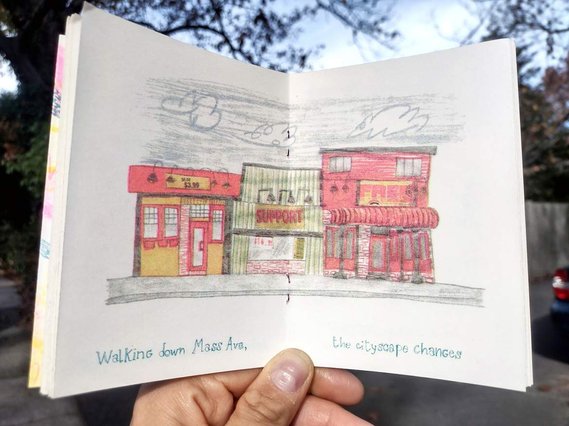 $3.99
SUPPORT
Walking down Mass Ave,
the cityscape changes